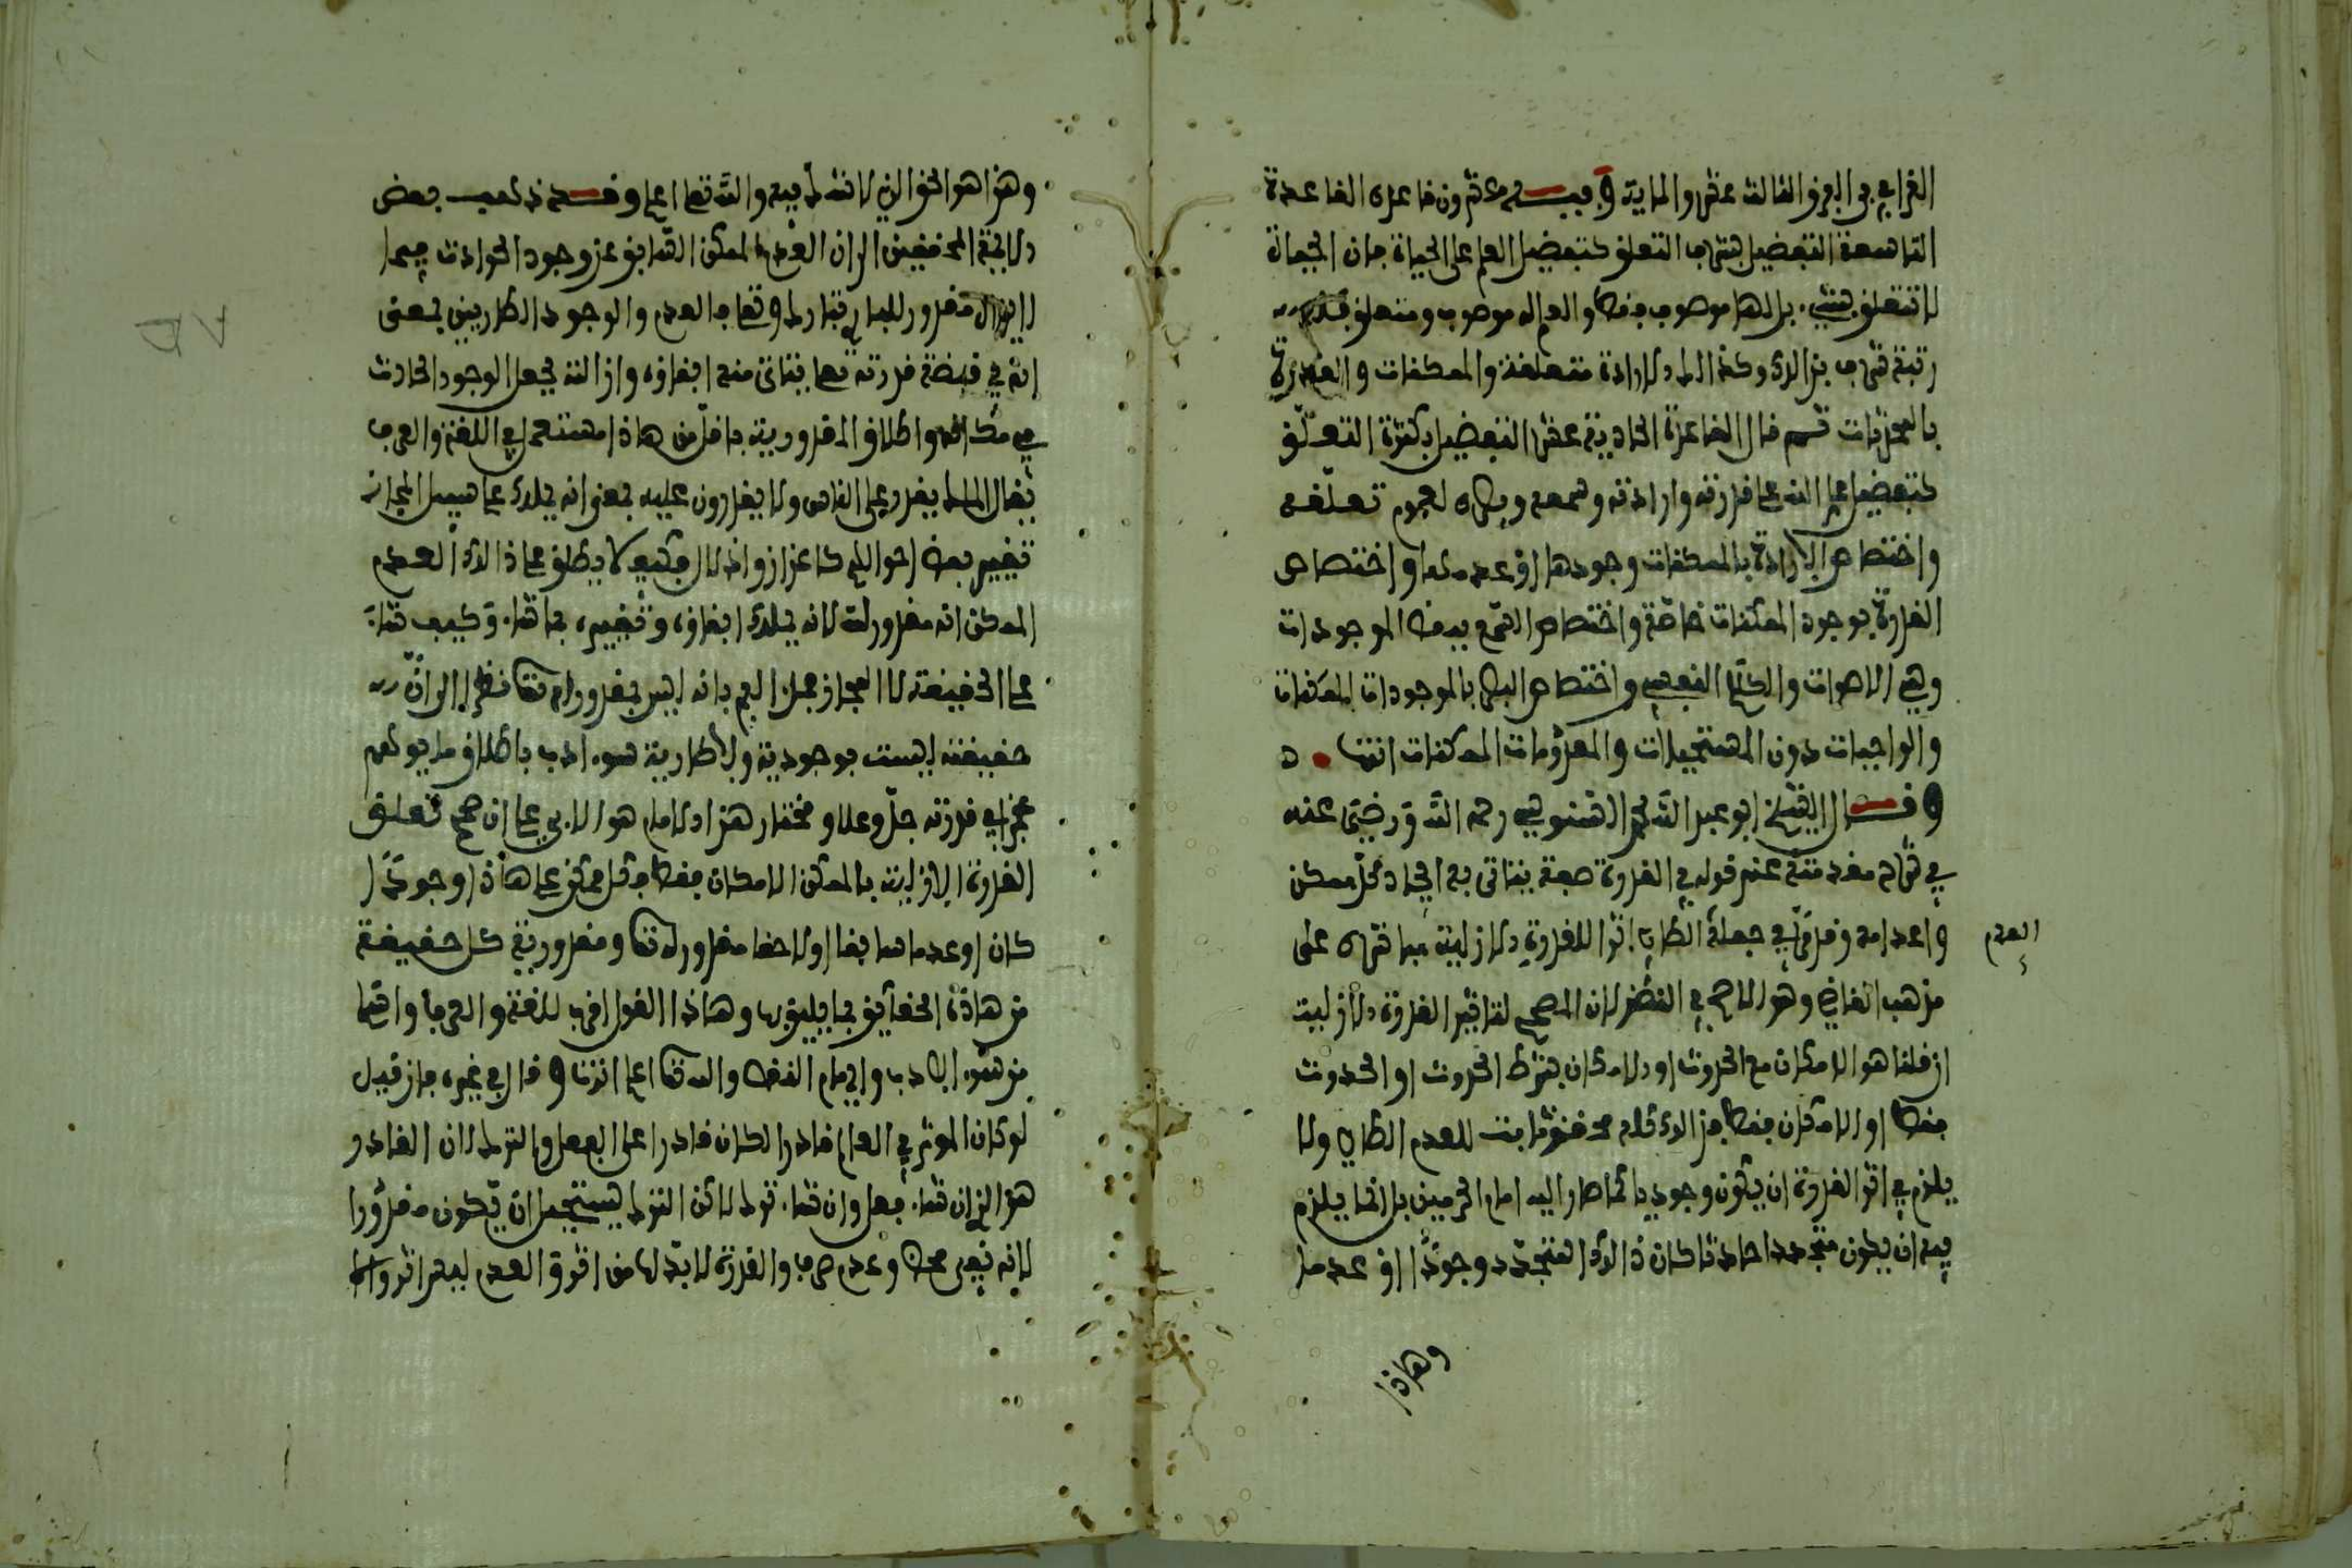 القرافي في الفرق الثالث عشر والماية وفيه عشرون قاعدة القاعدة
التاسعة التفضيل بشرف التعلق كتفضيل العلم على الحياة فان الحياة
لا تتعلق بشيء بل لها موصوف فقط والعلم له موصوف ومتعلق فله
رتبة شرف بذالك وكذالك الارادة متعلقة بالممكنات والقدرة
بالمحدثات ثم قال القاعدة الحادية عشر التفضيل بكثرة التعلق
كتفضيل علم الله على قدرته وارادته وسمعه وبصره لعموم تعلقه
واختصاص الارادة بالممكنات وجودها او عدمها واختصاص
القدرة بوجود الممكنات خاصة واختصاص السمع ببعض الموجودات
وهي الاصوات والكلام النفسي واختصاص البصر بالموجودات الممكنات
والواجبات دون المستحيلات والمعدومات الممكنات انتهى
وقال الشيخ ابو عبد الله محمد السنوسي رحمه الله ورضي عنه
في شرح مقدمته عند قوله في القدرة صفة يتاتى بها ايجاد كل ممكن
واعدامه وقد في جعله الطاري اثرا للقدرة الازلية مما شره على
العدم
مذهب القاضي وهو الاصح في النظر لان المصحح لتاثير القدرة الازلية
ان قلنا هو الامكان مع الحدوث او الامكان بشرط الحدوث او الحدوث
فقط او الامكان فقط فذالك كله محقق ثابت للعدم الطاري ولا
يلزم في اثر القدرة ان يكون وجوديا كما صار اليه امام الحرمين بل انما يلزم
فيه ان يكون متجددا حادثا كان ذالك المتجدد وجودا او عدما
وهاذا
وهذا هو الحق الذي لا شك فيه والله تعالى اعلم وقد ذهب بعض
الايمة المحققين الى ان العدم الممكن السابق عن وجود الحوادث فيما
لا يزال مقدور للباري تبارك وتعالى كالعدم والوجود الطاريين بمعنى
انه في قبضة قدرته تعالى يتاتى منه ابقاؤه وازالته بجعل الوجود الحادث
في مكانه واطلاق المقدورية باقل من هاذا مستعمل في اللغة والعرف
يقال الملك يقدر على الناس ولا يقدرون عليه بمعنى انه يملك على سبيل المجاز
تغيير بعض احوالهم كاعزاز واذلال فكيف لا يطلق على ذالك العدم
الممكن انه مقدور لله لانه يملك ابقاؤه وتغييره بما شاء وكيف شاء
على الحقيقة لا المجاز فجزم بانه ليس بمقدور له تعالى نظرا الى ان
حقيقته ليست بوجودية ولا طارية سوء ادب باطلاق ما يوهم
عجز في قدرته جل وعلا ومختار هذا الامام هو الا بي على ان صحح تعلق
القدرة الازلية بالممكن الامكان فقط فكل ممكن على هاذا وجودا
كان او عدما سابقا او لاحقا مقدور له تعالى ومقدورية كل حقيقة
من هاذه الحقايق بما يليق بها وهاذا القول اقرب للغة والعرف واسلم
من سوء الادب وايهام النقص والله تعالى اعلم انتهى وقال في غيره فان قيل
لو كان الموثر في العالم قادرا لكان قادرا على الفعل والترك لان القادر
هو الذي ان شاء فعل وان شاء ترك لاكن الترك يستحيل ان يكون مقدورا
لانه نفي محض وعدم صرف والقدرة لا بد لها من اثر والعدم ليس اثر